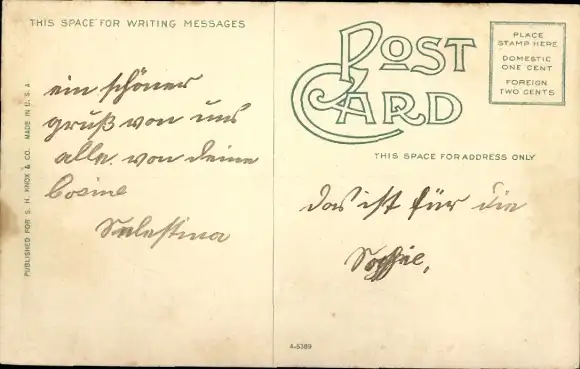 THIS SPACE FOR WRITING MESSAGES
ein schöner
gruß von uns
alle. von deine
Cosine
Selestina
PUBLISHED FOR S. H. KNOX & CO. MADE IN U. S. A
POST
CARD
PLACE
STAMP HERE
DOMESTIC
ONE CENT
FOREIGN
TWO CENTS
THIS SPACE FOR ADDRESS ONLY
das ist für die
Sophie,
4-5389